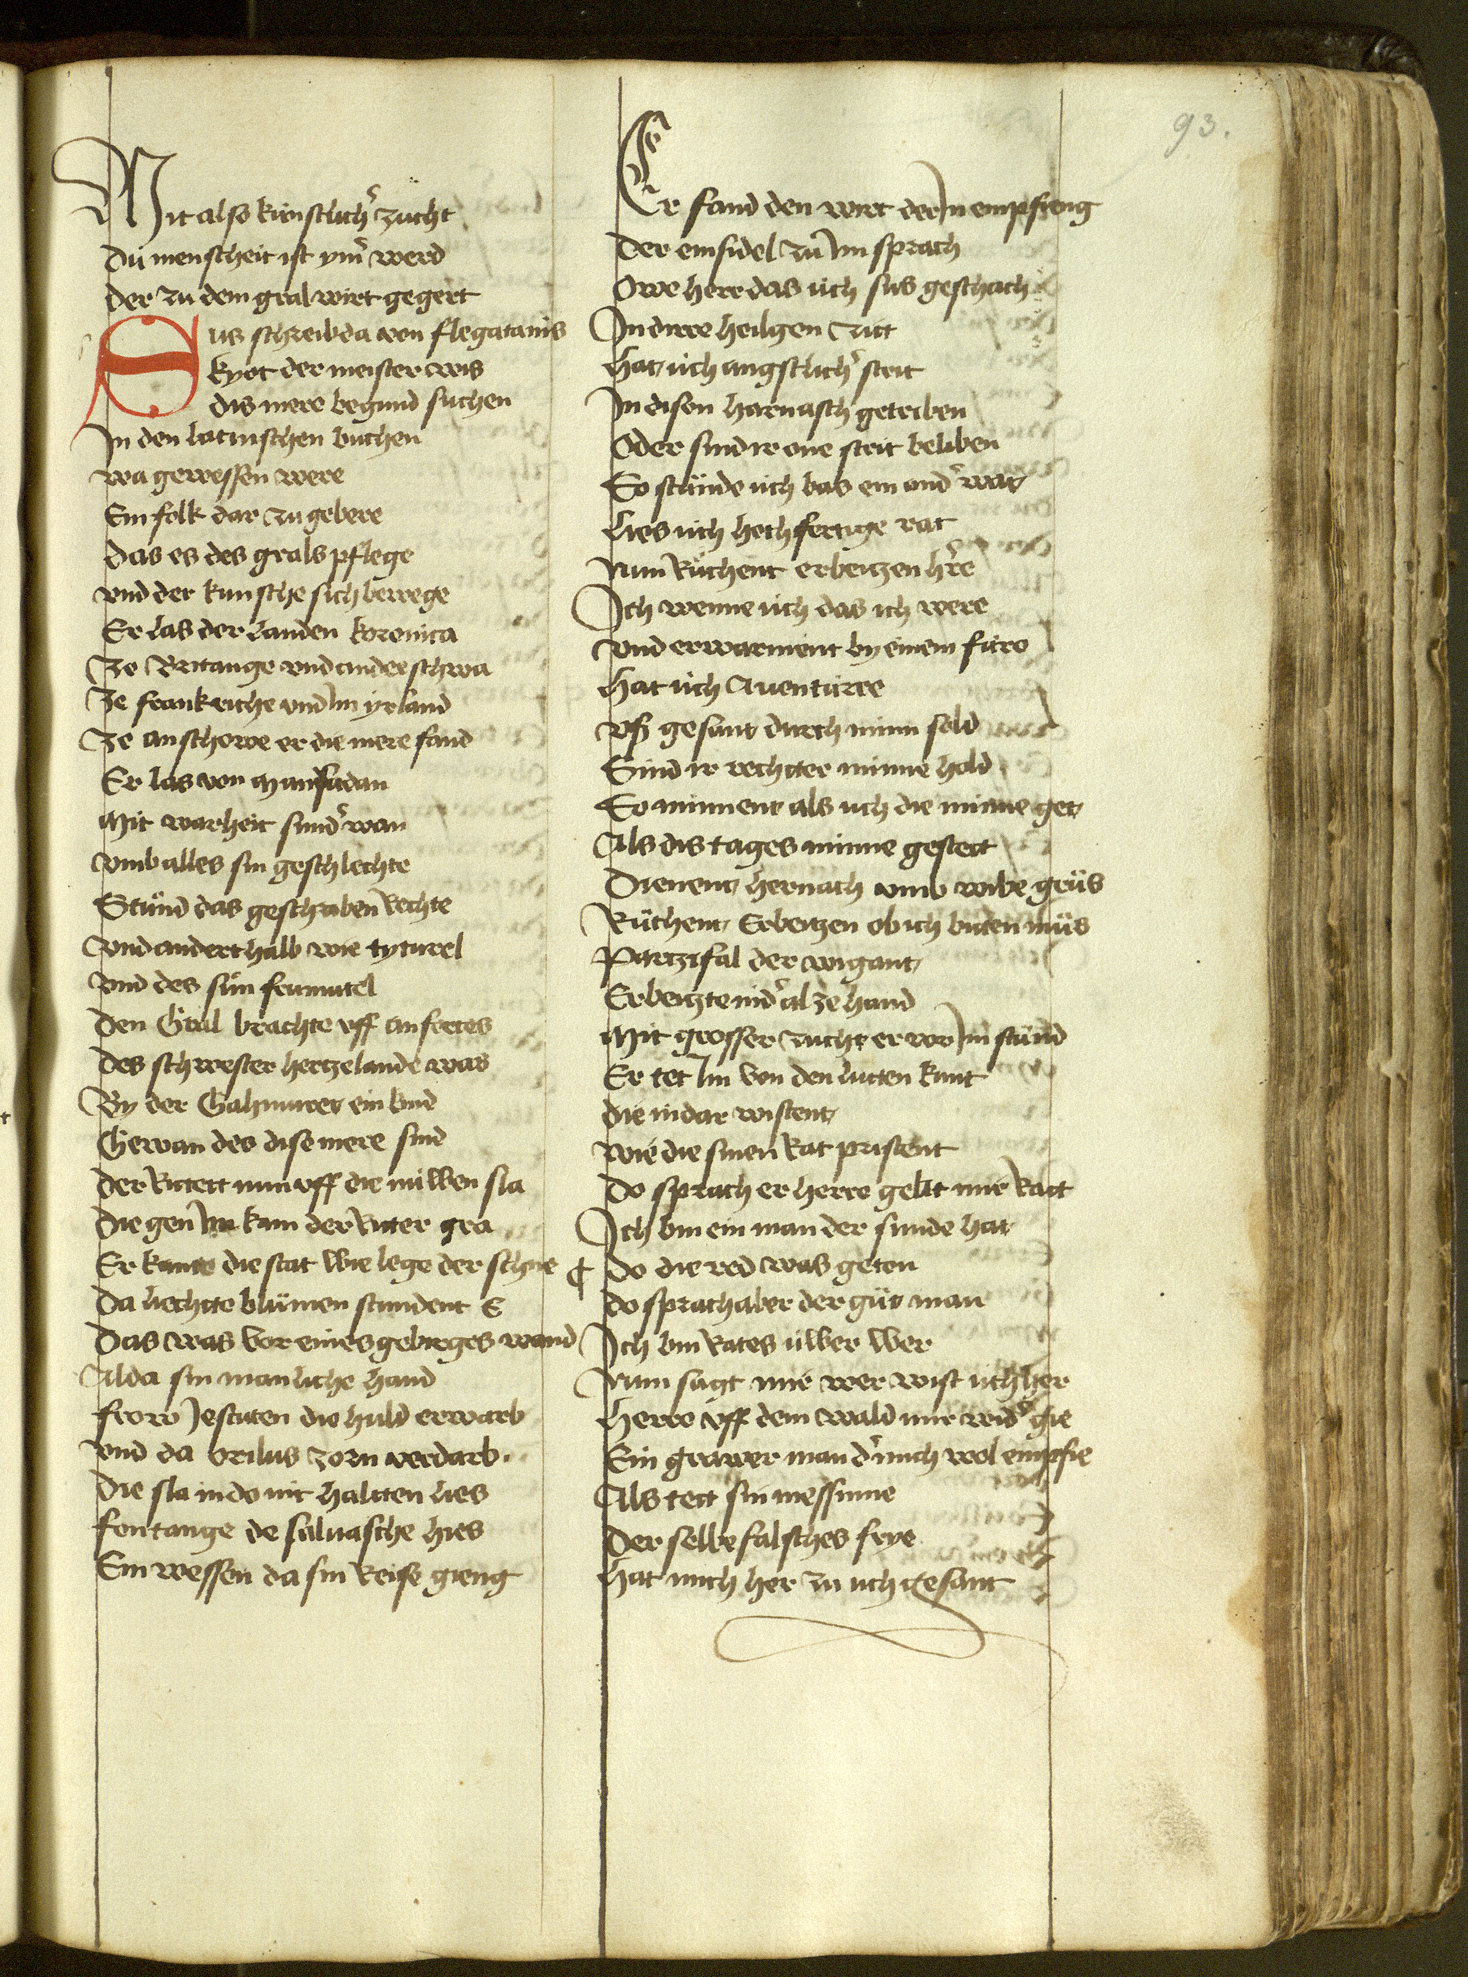 93.
Mit also künstlicher zucht
Dü menscheit ist ymer werd
Der zu dem gral wirt gegert
Sus schreib da von flegatanis
kyot der meister wis
dis mere begund suchen
In den latinschen buchen
wa gewessen were
Ein folk dar zu gebere
Das es des grals pflege
vnd der kunsche sich bewege
Er las der landen koronica
Ze Britange vnd anderschwa
Ze frankriche vnd Im yrland
Ze anschowe er die mere fand
Er las von manfadan
Mit warheit sunder wan
vmb alles sin geschlechte
Stünd das geschriben rechte
vnd anderthalb wie tyturel
vnd des sün frimutel
Den Gral brachte vff anfortes
Des schwester hertzelande was
By der Gahmuret ein kind
Gewan des dise mere sind
Der Rittett nun vff die nüwen sla
Die gen Im kam der Ritter gra
Er kante die stat wie lege der schne
Da liechtte blümen stundent E
Das was vor eines gebirges wand
Alda sin manliche hand
frow Jestuten die huld erwarb
vnd da Orilus zorn verdarb
Die sla in do nit haltten lies
fontange de saluasche hies
Ein wessen da sin Reise gieng
Er fand den wirt der In empfieng
Der einsidel zü Im sprach
Owe herr das üch sus geschach
In dirre heilgen Zitt
Hat üch angstlicher strit
In disen harnasch getriben
Oder sind ir one strit beliben
So stünde üch bas ein ander wat
Lies üch hochfertige rat
Nun Rüchent erbeitzen here
Ich wenne üch das ich were
vnd erwarment by einem füre
Hat üch Auentürre
vß gesant durch minn sold
Sind ir rechtter minne hold
So minnent als uch die minne get
Als dis tages minne gestett
Dienent hernach vmb wibe grüs
Rüchent Erbeitzen ob ich bitten müs
Partzifal der wigant
Erbeitzte nider al ze hand
Mit grosser zucht er vor Im stünd
Er tet Im von den lütten kunt
die in dar wistent
wie die sinen Rat pristent
Do sprach er herre gebt mir Ratt
Ich bin ein man der sunde hat
¶ Do die red was geton
do sprach aber der güt man
Ich bin Rates üwer wer
Nun sagt mir wer wist üch her
Herre vff dem wald mir wider gie
Ein grawer man der mich wol empfie
Als tett sin messinne
Der selbe falsches frye
Hat mich her zu uch gesant